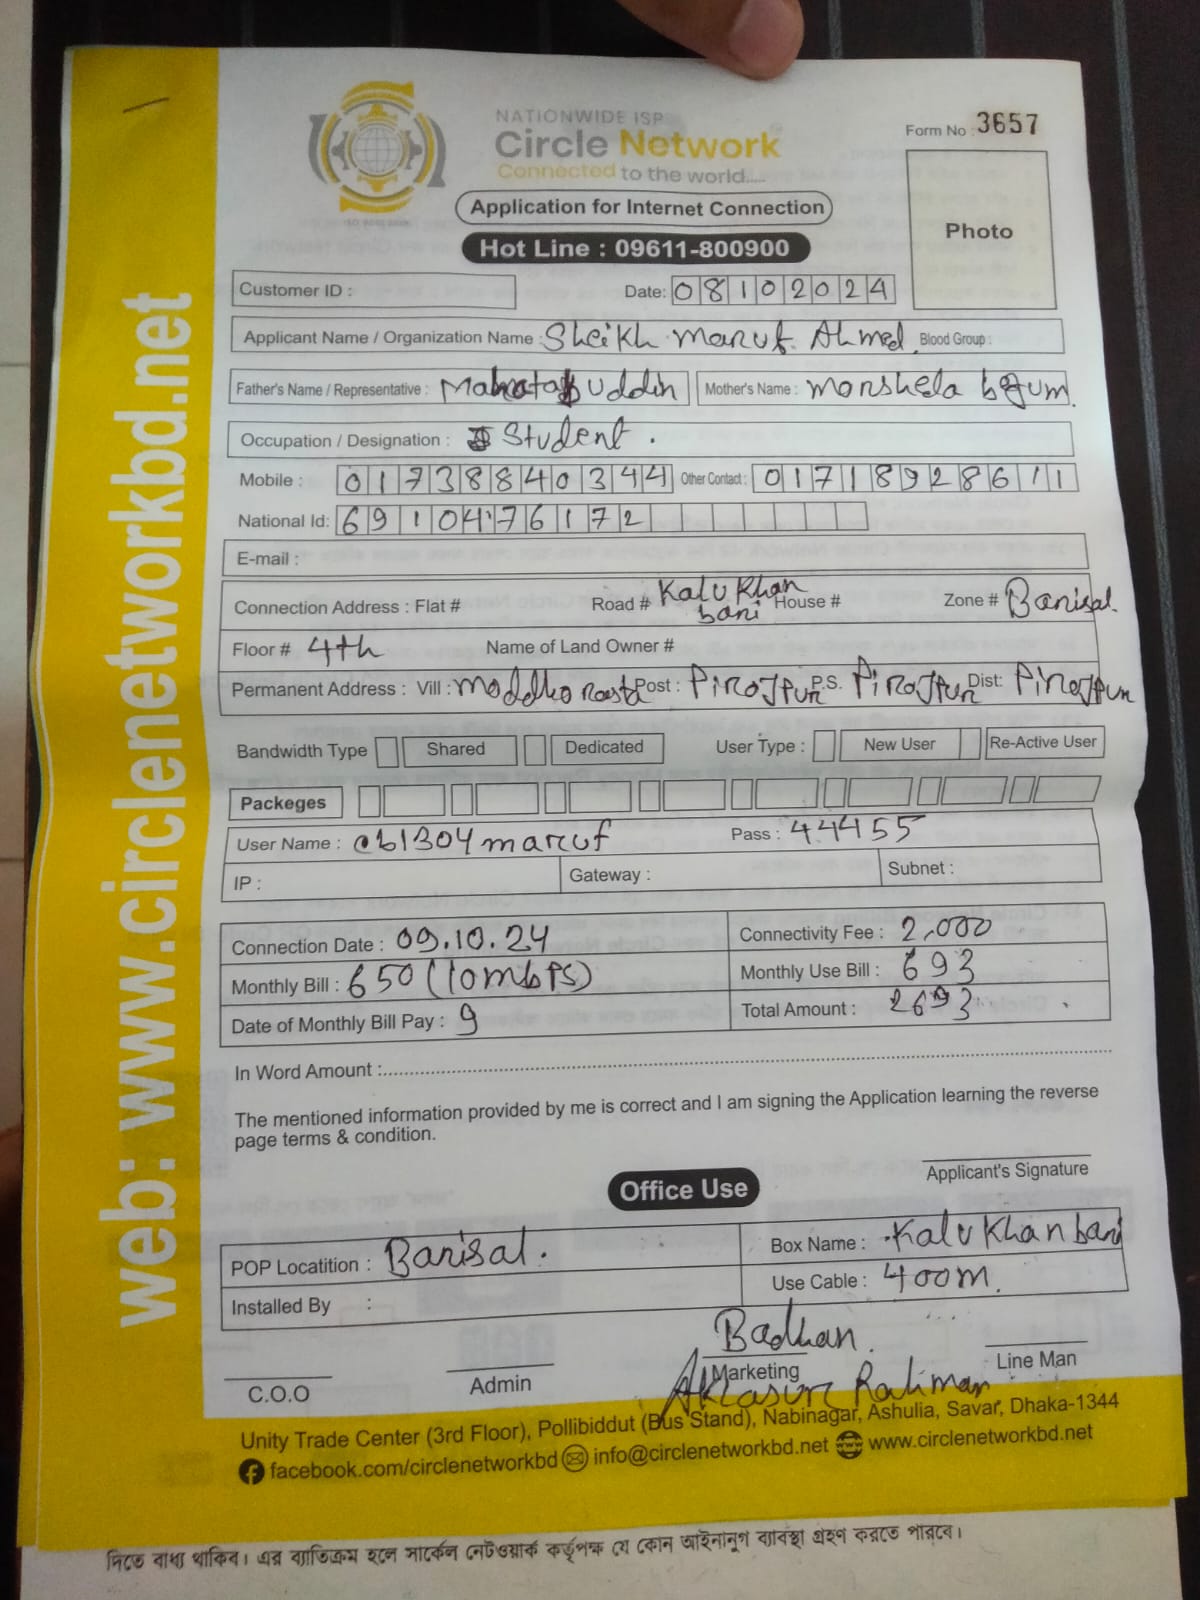 NATIONWIDE ISP
Circle Network
Connected to the world....
Form No : 3657
Photo
Application for Internet Connection
Hot Line : 09611-800900
Customer ID :
Date: 08102024
Applicant Name / Organization Name : Sheikh Maruf Ahmed Blood Group :
Father's Name / Representative : Uddin Mother's Name : Morsheda begum.
Occupation / Designation : Student.
Mobile : 01738840344 Other Contact : 01718928611
National Id: 6910476172
E-mail :
Connection Address : Flat # Road # Kalu Khan bari House # Zone # Barisal.
Floor # 4th Name of Land Owner #
Permanent Address : Vill : Moddho rasta Post : Pirojpur P.S. Pirojpur Dist: Pirojpur
Bandwidth Type Shared Dedicated User Type : New User Re-Active User
Packeges
User Name : cb1304maruf Pass : 44455
IP : Gateway : Subnet :
Connection Date : 09.10.24 Connectivity Fee : 2,000
Monthly Bill : 650 (10mbps) Monthly Use Bill : 693
Date of Monthly Bill Pay : 9 Total Amount : 2693
In Word Amount :
The mentioned information provided by me is correct and I am signing the Application learning the reverse
page terms & condition.
Applicant's Signature
Office Use
POP Locatition : Barisal. Box Name : Kalu Khan bari
Installed By : Use Cable : 400m.
Badhan.
C.O.O Admin Marketing Line Man
Rahman
Unity Trade Center (3rd Floor), Pollibiddut (Bus Stand), Nabinagar, Ashulia, Savar, Dhaka-1344
facebook.com/circlenetworkbd info@circlenetworkbd.net www.circlenetworkbd.net
web: www.circlenetworkbd.net
দিতে বাধ্য থাকিব। এর ব্যতিক্রম হলে সার্কেল নেটওয়ার্ক কর্তৃপক্ষ যে কোন আইনানুগ ব্যাবস্থা গ্রহণ করতে পারবে।